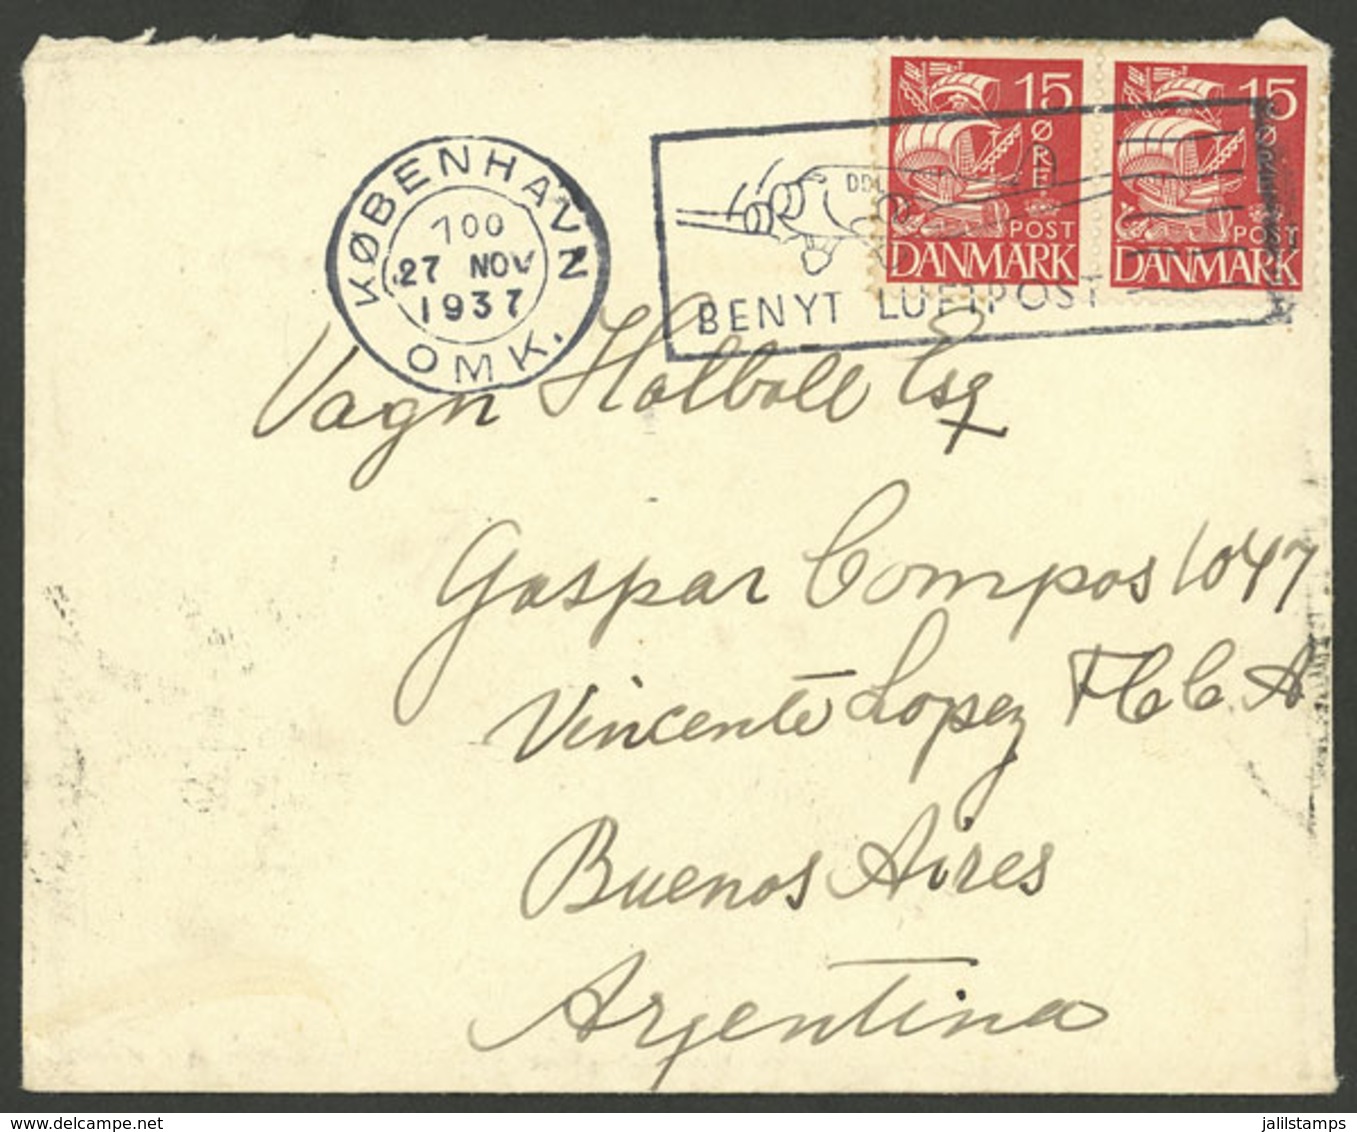 KØBENHAVN
700
27 NOV
1937
OMK.
DDL
BENYT LUFTPOST
15
ØRE
POST
DANMARK
15
ØRE
POST
DANMARK
Vagn Holboll Esq
Gaspar Compos 1047
Vincente Lopez F.C.C.A
Buenos Aires
Argentina
jalilstamps